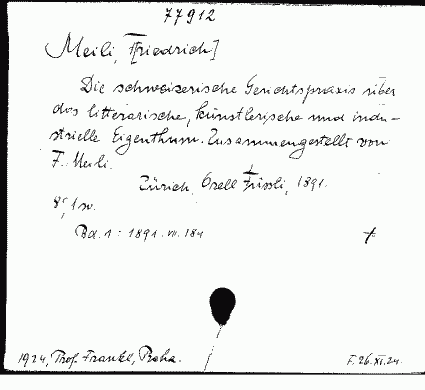 77912
Meili, F[riedrich]
Die schweizerische Gerichtspraxis über
das litterarische, künstlerische und indu-
strielle Eigenthum. Zusammengestellt von
F. Meili.
Zürich, Orell Füssli, 1891.
8°, 1 sv.
Bd. 1: 1891. VII. 184
1924, Prof. Frankl, Praha.
F. 26.XI.24.